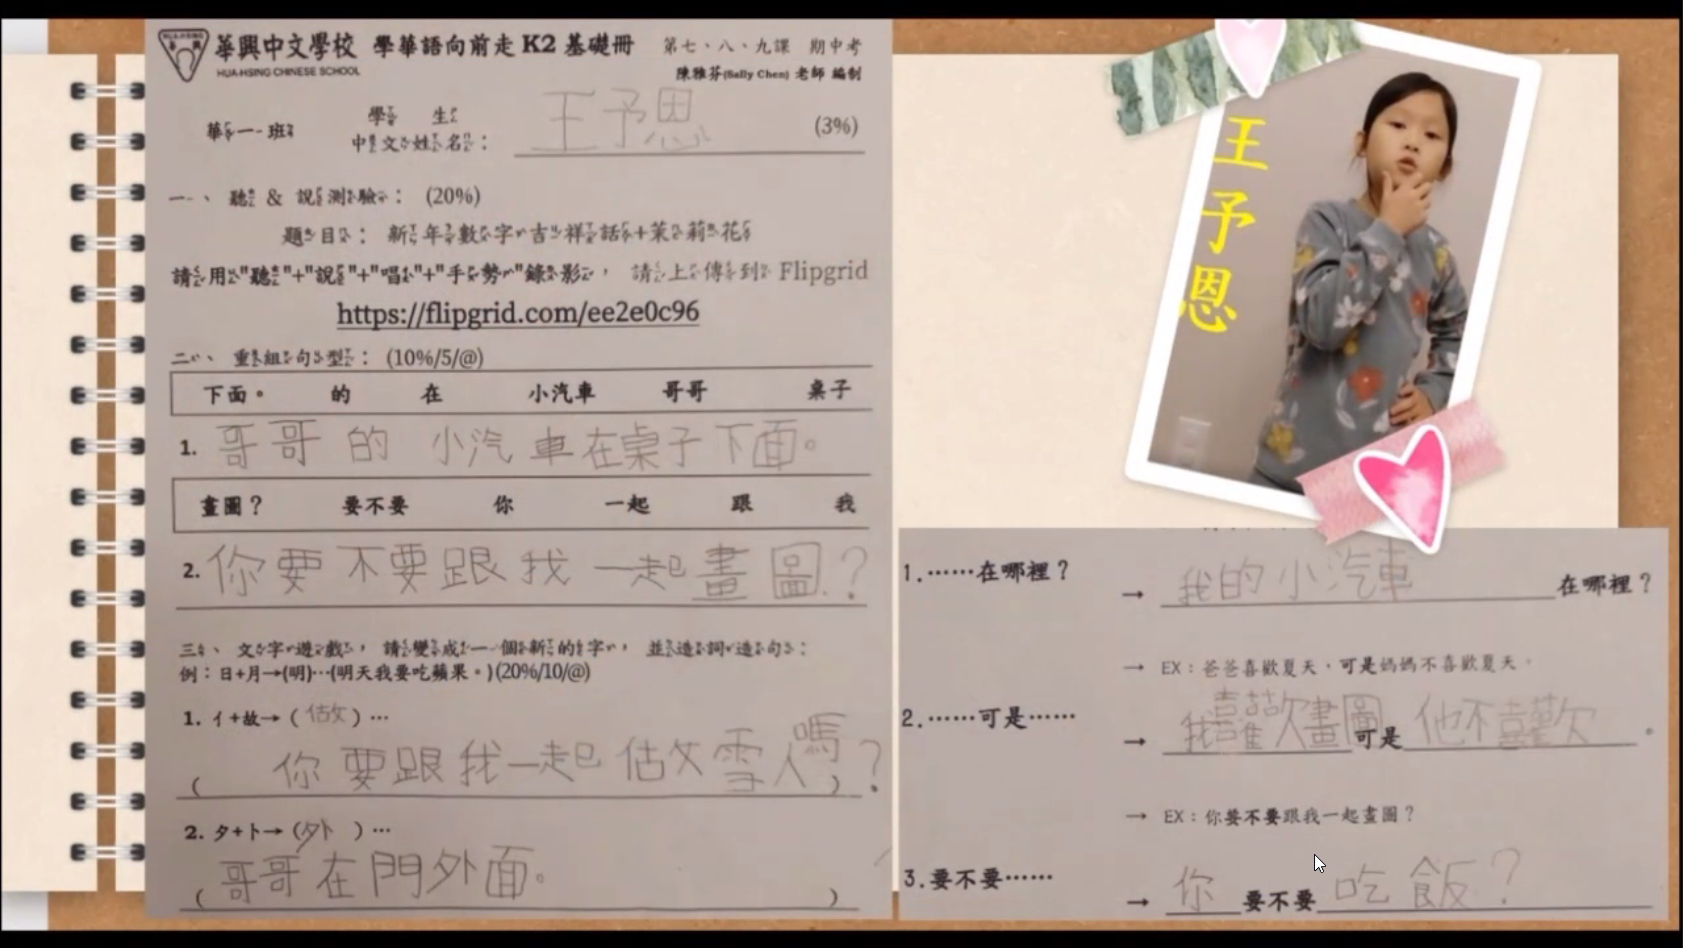 華興中文學校 學華語向前走 K2 基礎冊 第七、八、九課 期中考
HUA-HSING CHINESE SCHOOL
陳雅芬(Sally Chen) 老師 編制
華一班 學生
中文姓名： 王予恩 (3%)
一、聽 & 說測驗： (20%)
題目： 新年數字吉祥話+茉莉花
請用"聽"+"說"+"唱"+"手勢"錄影， 請上傳到 Flipgrid
https://flipgrid.com/ee2e0c96
二、重組句型： (10%/5/@)
下面。 的 在 小汽車 哥哥 桌子
1. 哥哥的 小汽車在桌子下面。
畫圖？ 要不要 你 一起 跟 我
2. 你要不要跟我一起畫圖？
三、文字遊戲， 請變成一個新的字， 並造詞造句：
例：日+月→(明)…(明天我要吃蘋果。)(20%/10/@)
1. 亻+故→ (做) …
( 你要跟我一起做雪人嗎 )？
2. 夕+卜→ (外 ) …
( 哥哥在門外面。 )
王予恩
1.……在哪裡？
→ 我的小汽車 在哪裡？
→ EX：爸爸喜歡夏天，可是媽媽不喜歡夏天。
2.……可是……
→ 我喜歡畫圖可是他不喜歡。
→ EX：你要不要跟我一起畫圖？
3.要不要……
→ 你 要不要 吃飯？